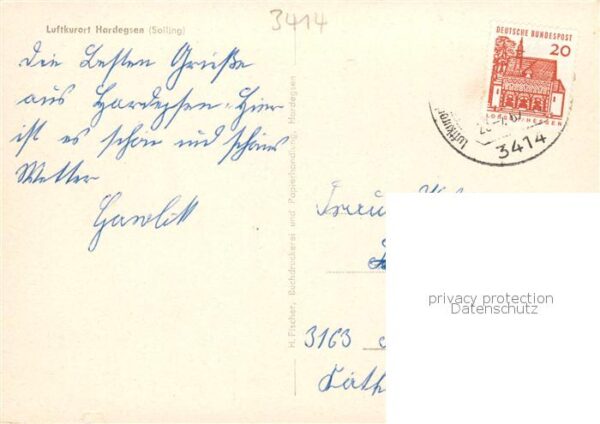 3414
Luftkurort Hardegsen (Solling)
Die besten Grüße
aus Hardegsen. Hier
ist es schön und schönes
Wetter
H. Fischer, Buchdruckerei und Papierhandlung, Hardegsen
DEUTSCHE BUNDESPOST
20
LORSCH/HESSEN
Luftkurort
3414
3163
privacy protection
Datenschutz